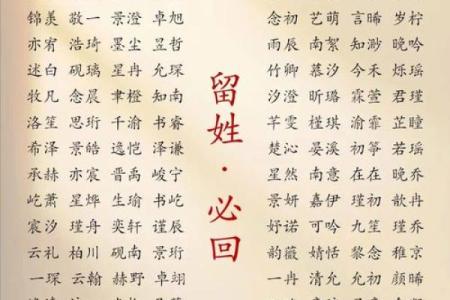 锦羡 敬一 景澄 卓旭
亦宥 浩琦 墨尘 昱哲
述白 砚璃 星冉 允琛
牧凡 念晨 聿橙 知南
洛笙 思珩 千渝 书睿
希泽 景皓 逸恺 泽谦
承赫 亦宸 晋禹 峻宁
屹萧 星烨 生瑜 书屹
宸汐 瑾舟 奕轩 谨辰
云礼 柏川 砚南 景珩
一琛 云翰 赫野 卓翊
留姓·必回
念初 艺萌 言晞 岁柠
雨辰 南絮 知渺 晚吟
竹卿 慕汐 今禾 烁瑶
汐澄 昕璐 霖萱 君瑾
芊雯 槿琪 渝霏 芷瞳
楚沁 晏溪 初筝 若瑶
星然 南意 在在 晚乔
景妍 嘉伊 瑾初 歆冉
妤诺 可吟 九笙 瑾乔
韵薇 婧恬 黎念 雅京
一冉 清允 允初 颜晞